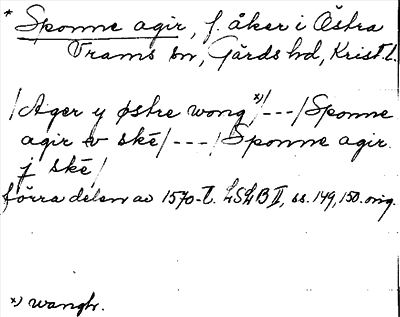 * Sponne agir, f. åker i Östra
Vrams sn, Gärds hd, Krist. l.
/Ager y østre wong *)/---/Sponne
agir v ské/---/Sponne agir
j ské/
förra delen av 1570-t. LSLB II, ss. 149, 150. orig.
*) wangh.